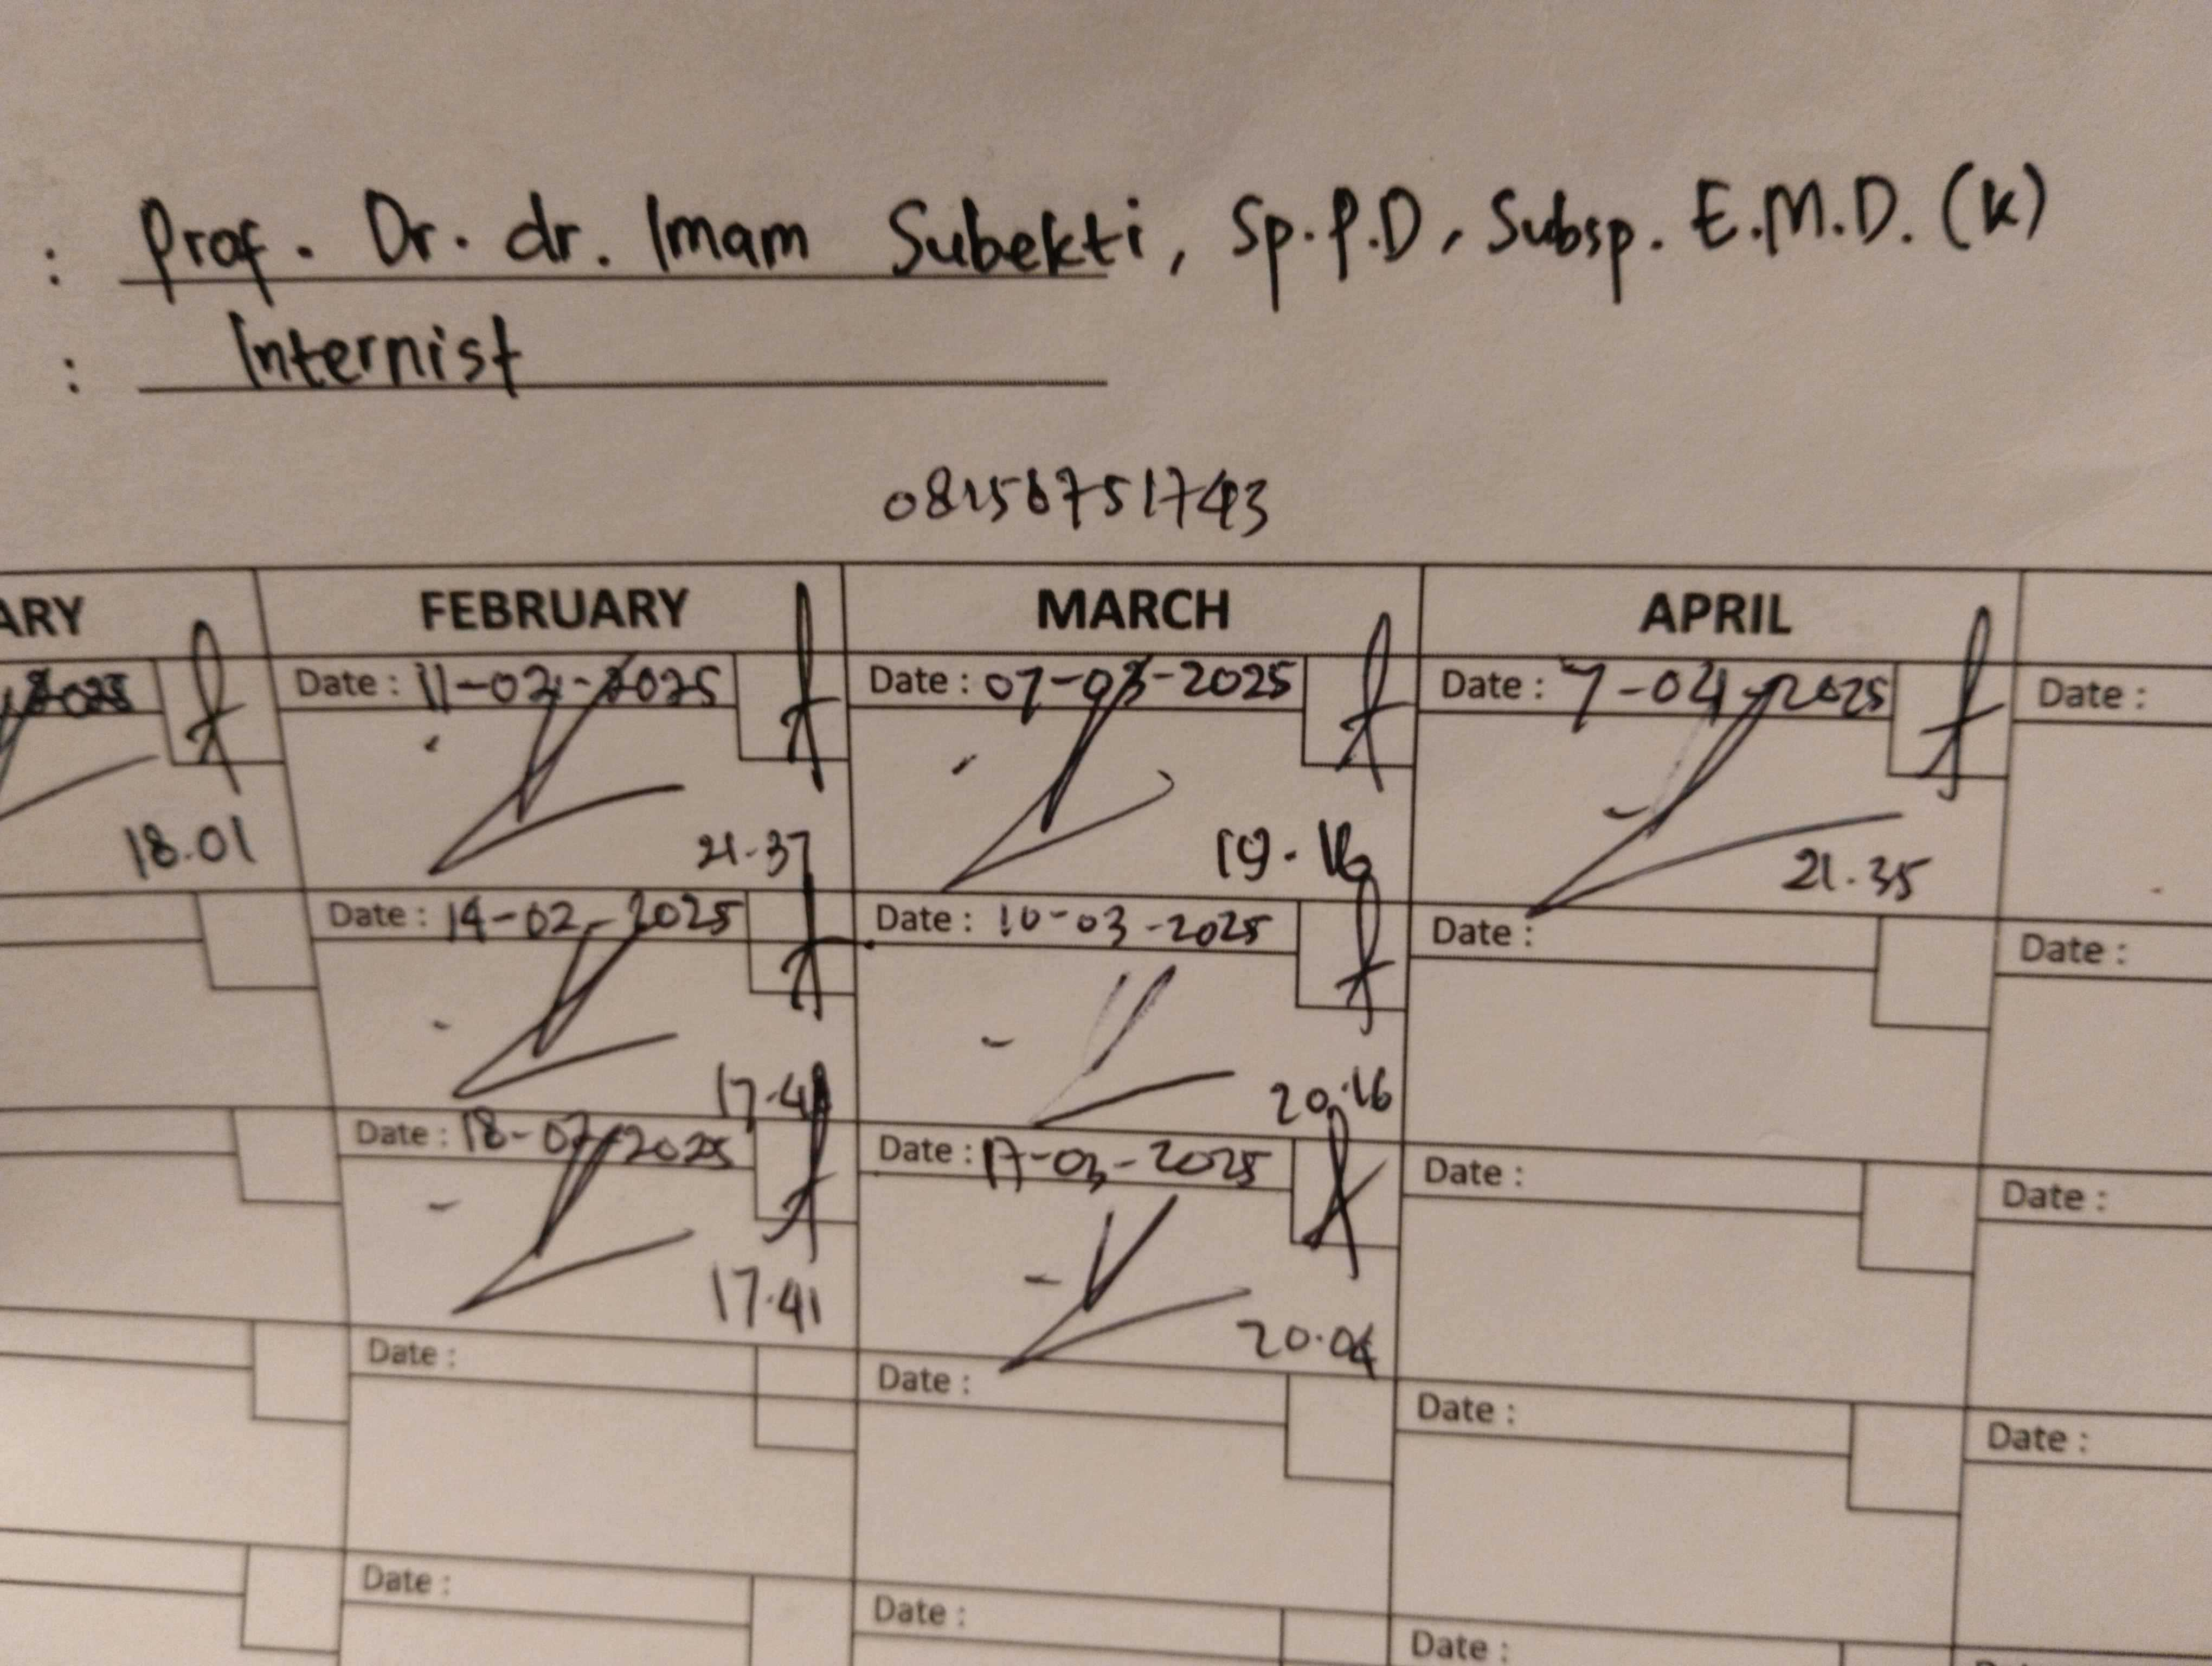 : Prof. Dr. dr. Imam Subekti, Sp.P.D, Subsp. E.M.D. (K)
: Internist
ARY FEBRUARY MARCH APRIL
2025 Date : 11-02-2025 Date : 07-03-2025 Date : 7-04-2025 Date :
18.01 21.37 19.16 21.35
Date : 14-02-2025 Date : 10-03-2025 Date : Date :
20.16
Date : 18-02-2025 Date : 17-03-2025 Date : Date :
17.41 20.04
Date : Date : Date : Date :
Date : Date : Date :